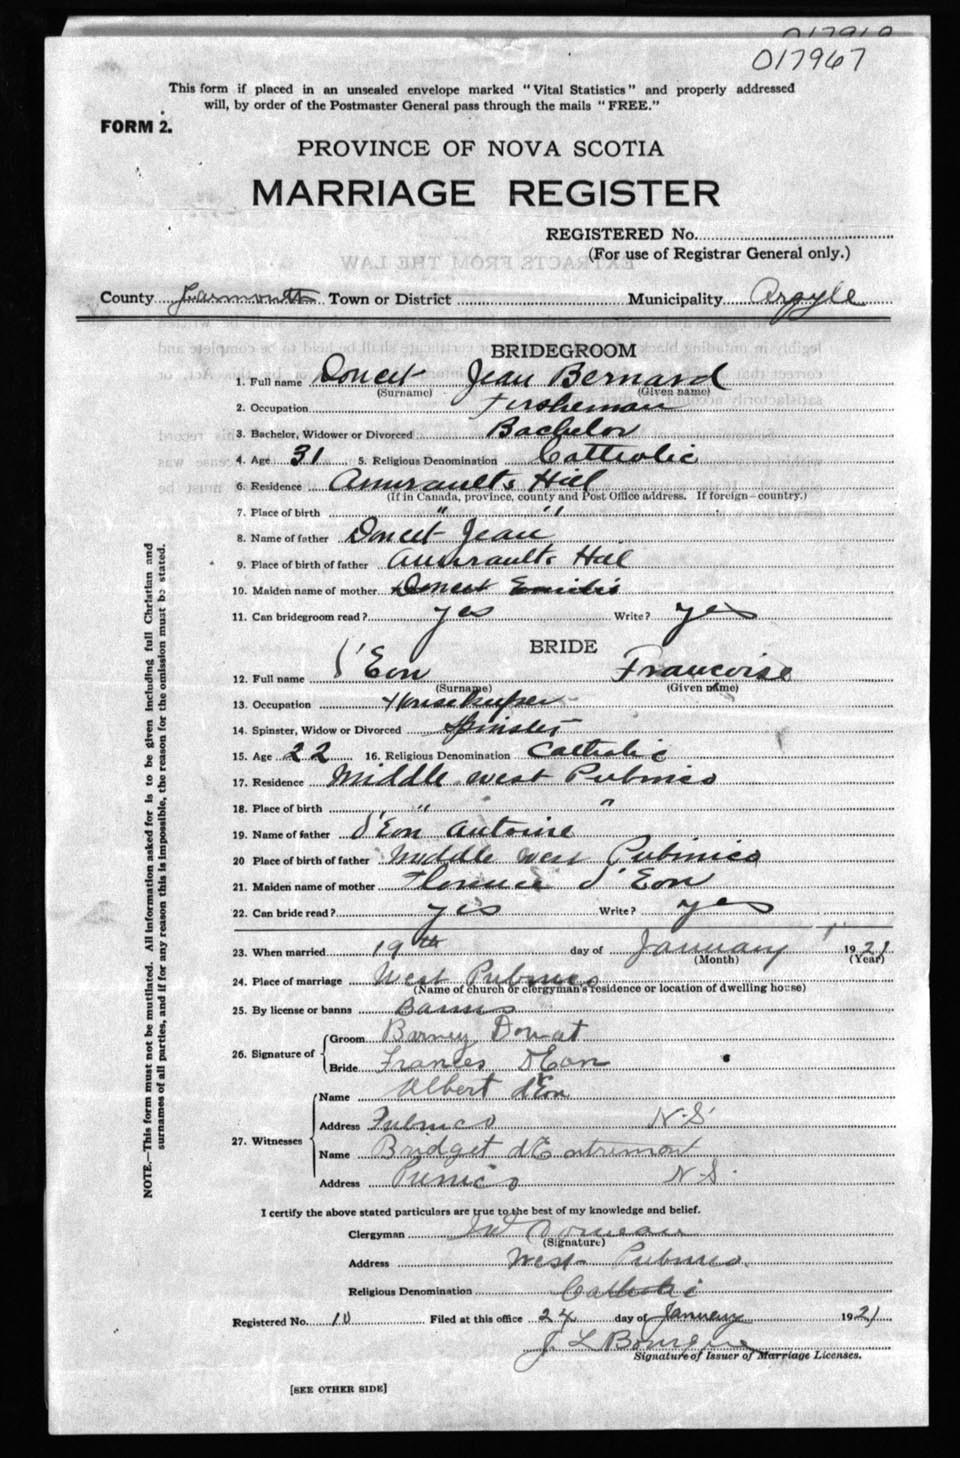 017967
This form if placed in an unsealed envelope marked "Vital Statistics" and properly addressed
will, by order of the Postmaster General pass through the mails "FREE."
FORM 2.
PROVINCE OF NOVA SCOTIA
MARRIAGE REGISTER
REGISTERED No.
(For use of Registrar General only.)
County Yarmouth Town or District Municipality Argyle
BRIDEGROOM
1. Full name Doucet Jean Bernard
(Surname) (Given name)
2. Occupation Fisherman
3. Bachelor, Widower or Divorced Bachelor
4. Age 31 5. Religious Denomination Catholic
6. Residence Amirault's Hill
(If in Canada, province, county and Post Office address. If foreign—country.)
7. Place of birth " "
8. Name of father Doucet Jean
9. Place of birth of father Amirault's Hill
10. Maiden name of mother Doucet Emilie
11. Can bridegroom read? yes Write? yes
BRIDE
12. Full name d'Eon Francoise
(Surname) (Given name)
13. Occupation Housekeeper
14. Spinster, Widow or Divorced Spinster
15. Age 22 16. Religious Denomination Catholic
17. Residence Middle west Pubnico
18. Place of birth " "
19. Name of father d'Eon Antoine
20 Place of birth of father Middle west Pubnico
21. Maiden name of mother Florence d'Eon
22. Can bride read? yes Write? yes
23. When married 19th day of January 1921
(Month) (Year)
24. Place of marriage West Pubnico
(Name of church or clergyman's residence or location of dwelling house)
25. By license or banns Banns
26. Signature of
Groom Barney Doucat
Bride Frances DEon
27. Witnesses
Name Albert d'Eon
Address Pubnico N.S
Name Bridget dEntremont
Address N.S.
I certify the above stated particulars are true to the best of my knowledge and belief.
Clergyman
(Signature)
Address West Pubnico
Religious Denomination Catholic
Registered No. 10 Filed at this office 24 day of January 1921
J L Bourque
Signature of Issuer of Marriage Licenses.
[SEE OTHER SIDE]
NOTE.—This form must not be mutilated. All information asked for is to be given including full Christian and
surnames of all parties, and if for any reason this is impossible, the reason for the omission must be stated.